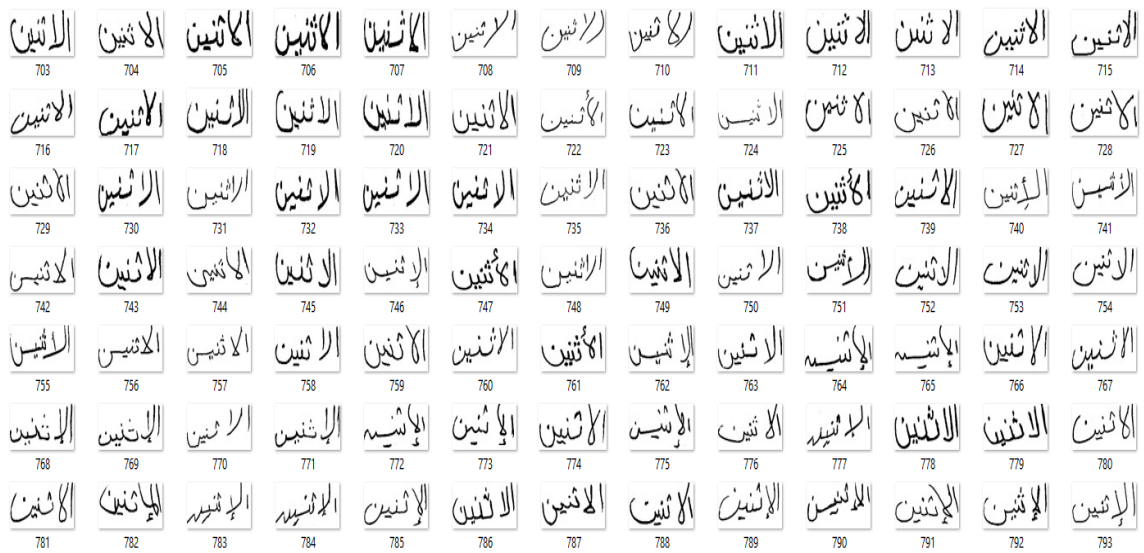 الاثنين الاثنين الاثنين الاثنين الاثنين الاثنين الاثنين الاثنين الاثنين الاثنين الاثنين الاثنين الاثنين
703 704 705 706 707 708 709 710 711 712 713 714 715
الاثنين الاثنين الاثنين الاثنين الاثنين الاثنين الأثنين الاثنين الاثنين الاثنين الاثنين الاثنين الاثنين
716 717 718 719 720 721 722 723 724 725 726 727 728
الاثنين الاثنين الاثنين الاثنين الاثنين الاثنين الاثنين الاثنين الاثنين الأثنين الاثنين الإثنين الاثنين
729 730 731 732 733 734 735 736 737 738 739 740 741
الاثنين الاثنين الاثنين الاثنين الإثنين الأثنين الاثنين الاثنين الاثنين الاثنين الاثنين الاثنين الاثنين
742 743 744 745 746 747 748 749 750 751 752 753 754
الاثنين الاثنين الاثنين الاثنين الاثنين الاثنين الأثنين الإثنين الاثنين الإثنين الإثنين الاثنين الاثنين
755 756 757 758 759 760 761 762 763 764 765 766 767
الإثنين الإثنين الاثنين الإثنين الإثنين الإثنين الاثنين الإثنين الاثنين الإثنين الاثنين الاثنين الاثنين
768 769 770 771 772 773 774 775 776 777 778 779 780
الاثنين الإثنين الإثنين الإثنين الإثنين الاثنين الاثنين الاثنين الإثنين الإثنين الإثنين الإثنين الإثنين
781 782 783 784 785 786 787 788 789 790 791 792 793